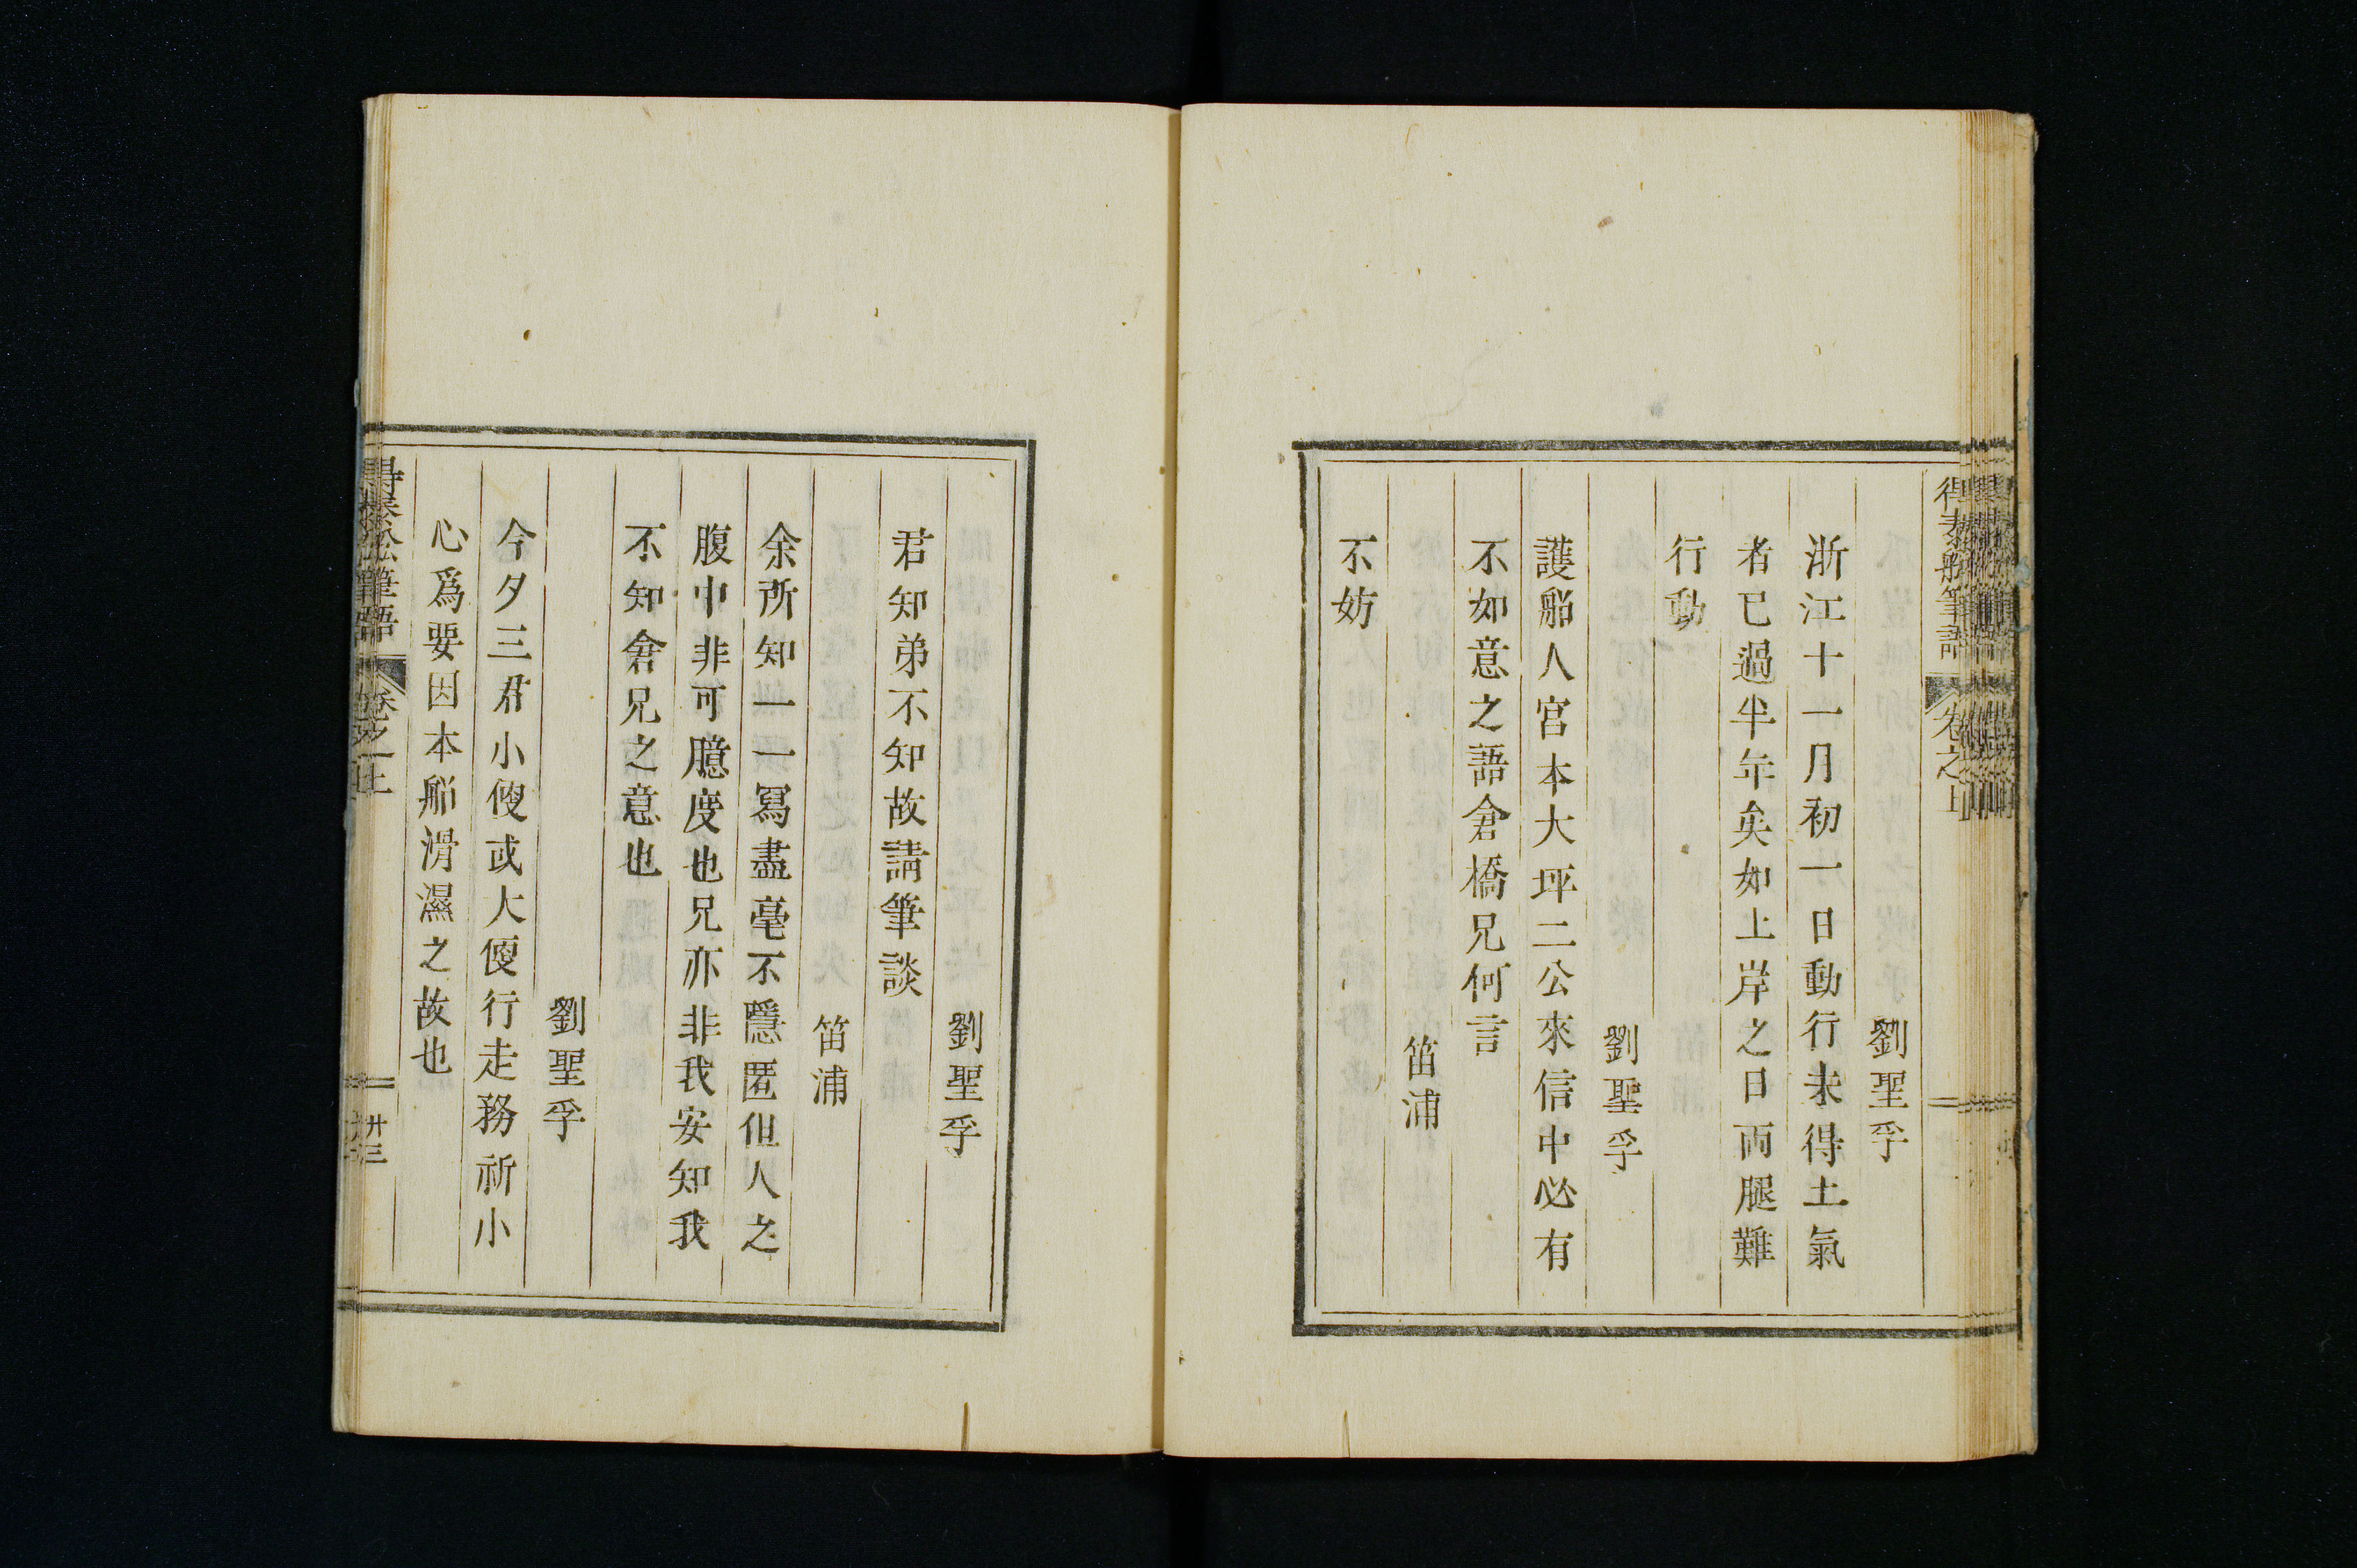 得泰船筆語 卷之上
劉聖孚
浙江十一月初一日動行未得土氣
者已過半年矣如上岸之日両腿難
行動
劉聖孚
護船人宮本大坪二公來信中必有
不如意之語倉橋兄何言
笛浦
不妨
劉聖孚
君知弟不知故請筆談
笛浦
余所知一一寫盡毫不隱匿但人之
腹中非可臆度也兄亦非我安知我
不知倉兄之意也
劉聖孚
今夕三君小便或大便行走務祈小
心爲要因本船滑濕之故也
得泰船筆語 卷之上
卅三